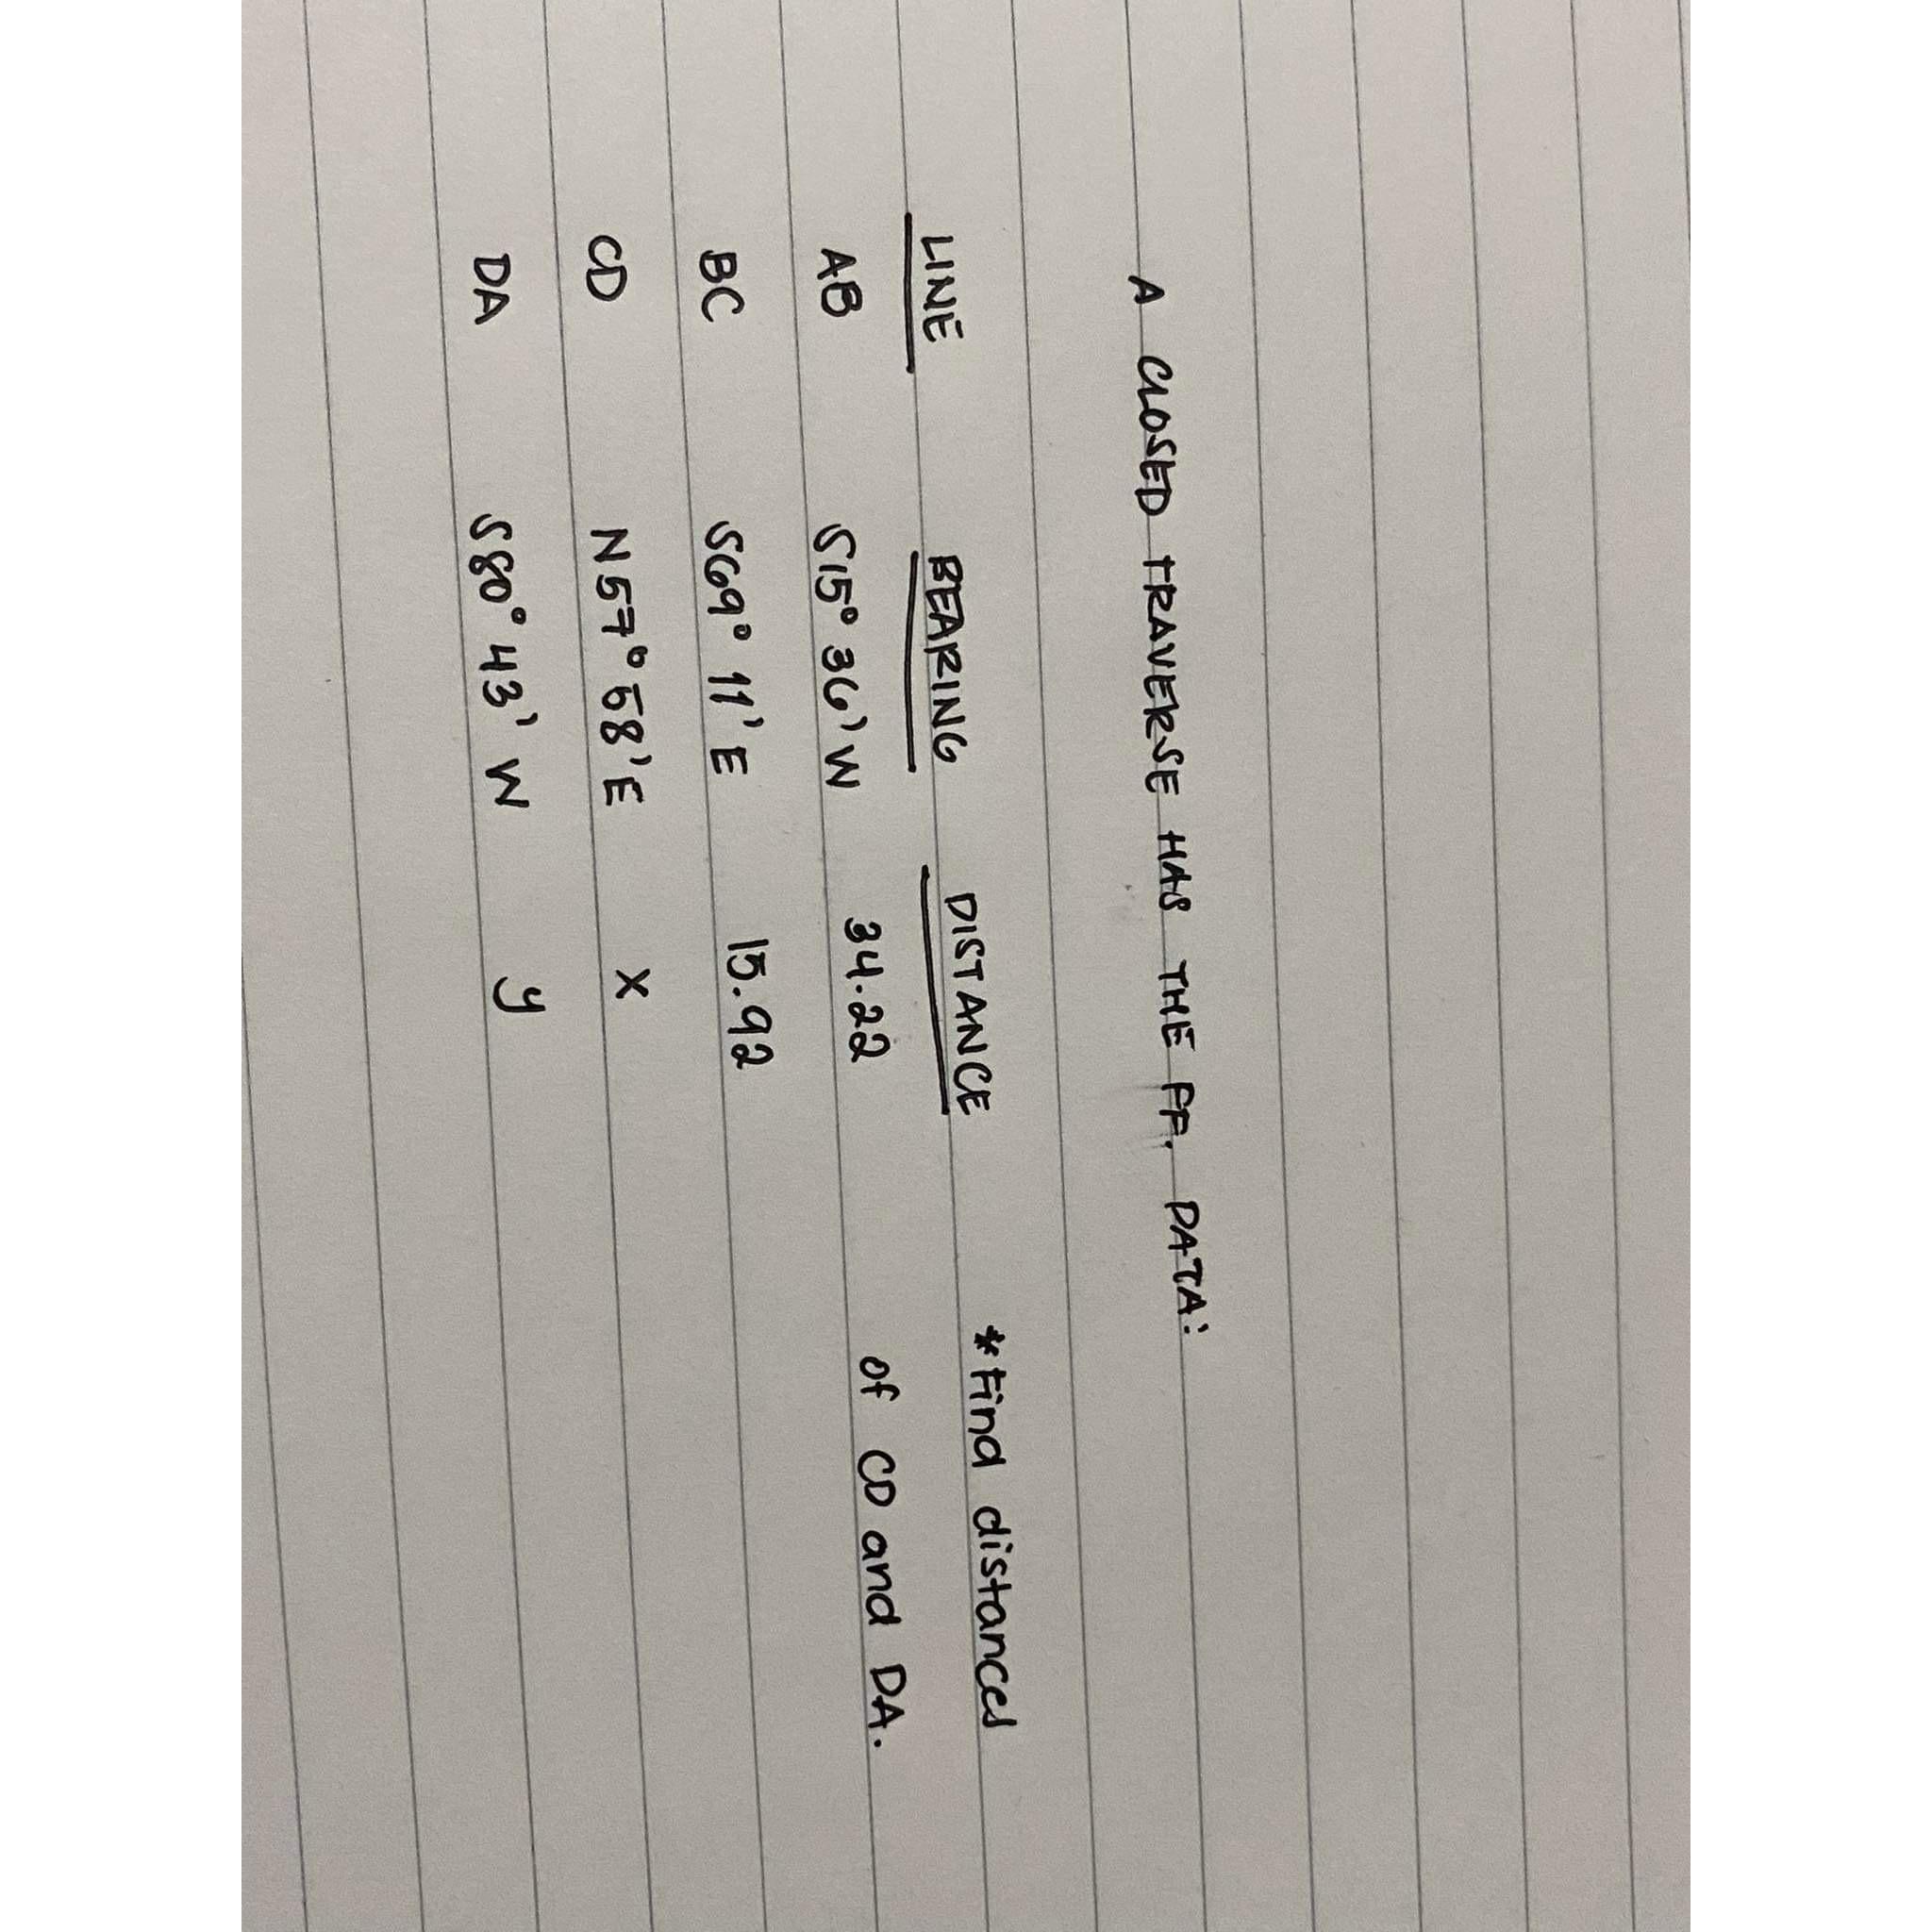 A CLOSED TRAVERSE HAS THE FF. DATA:
LINE BEARING DISTANCE *Find distances
AB S15° 36' W 34.22 of CD and DA.
BC S69° 11' E 15.92
CD N57° 58' E x
DA S80° 43' W y